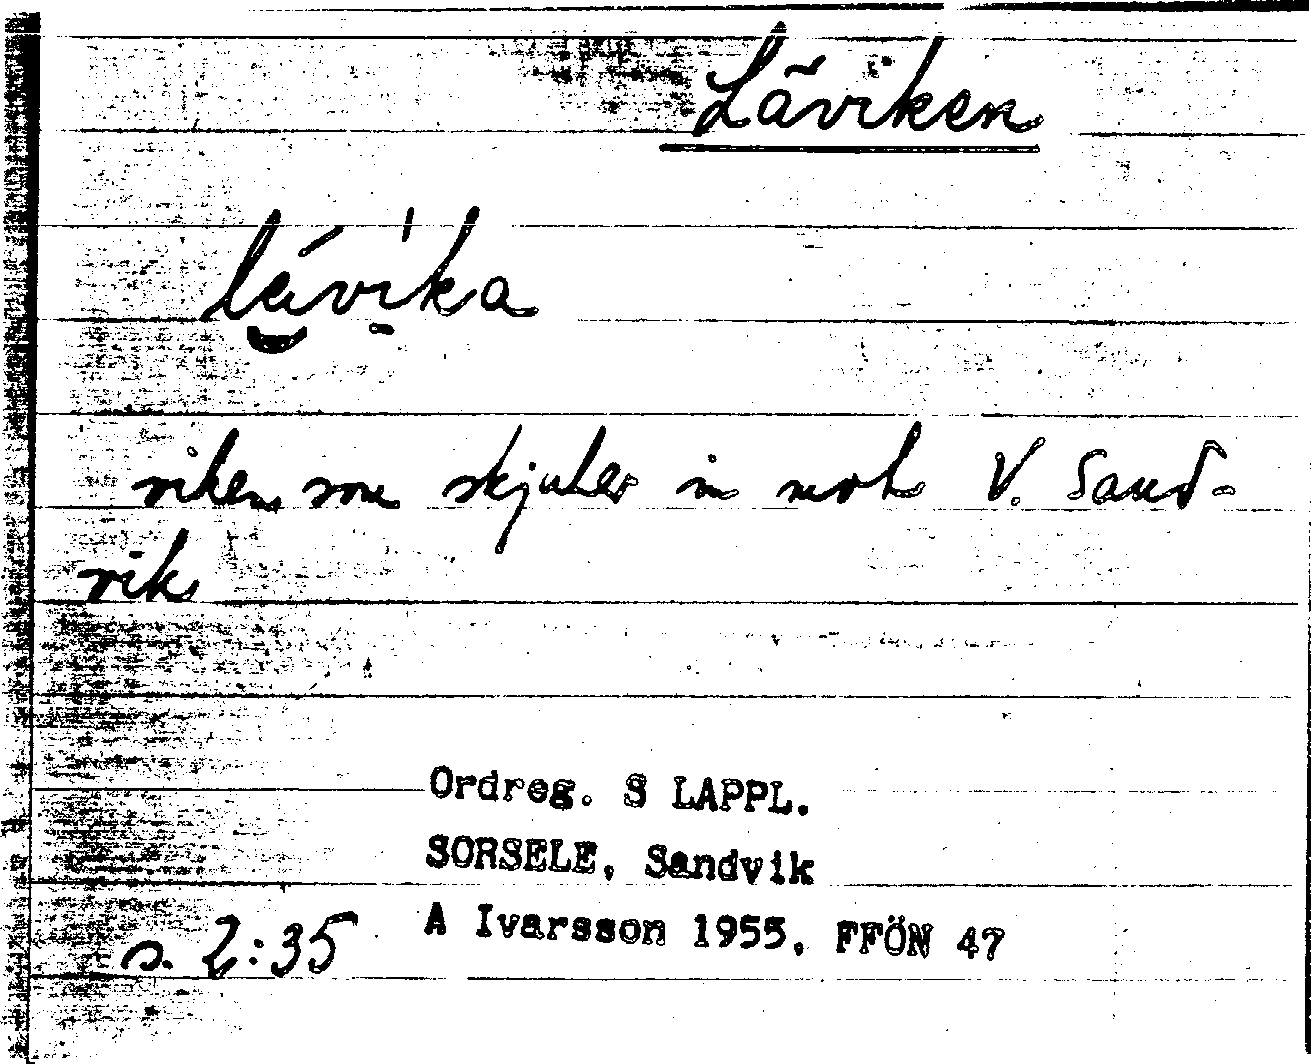 Läviken
lávika
viken som skjuter in mot V. Sand-
vik
Ordreg. S LAPPL.
SORSELE, Sandvik
A Ivarsson 1955, FFÖN 47
s. 2:35